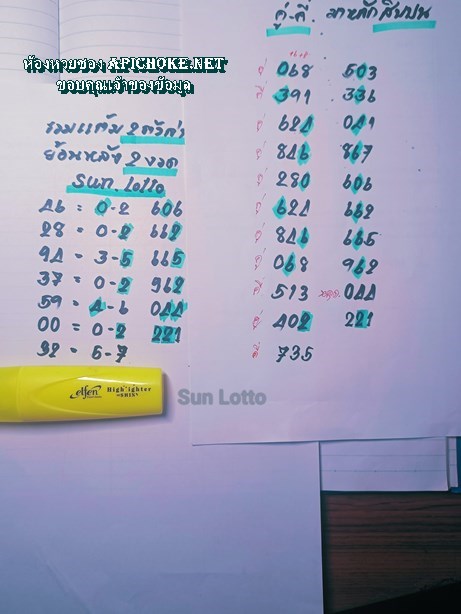 ห้องหวยซอง APICHOKE.NET
ขอบคุณเจ้าของข้อมูล
รวมแต้ม 2 ตัวล่าง
ย้อนหลัง 2 งวด
Sun. Lotto
46 = 0-2 606
28 = 0-2 662
94 = 3-5 665
37 = 0-2 962
59 = 4-6 044
00 = 0-2 221
92 = 5-7
คู่-คี่. มาหลักสิบบน
คู่ 068 503
คี่ 391 336
624 041
คู่ 846 867
คู่ 280 606
คู่ 624 662
คู่ 846 665
คู่ 068 962
คี่ 513 044
คู่ 402 221
คี่ 735
elfen Highlighter
Sun Lotto